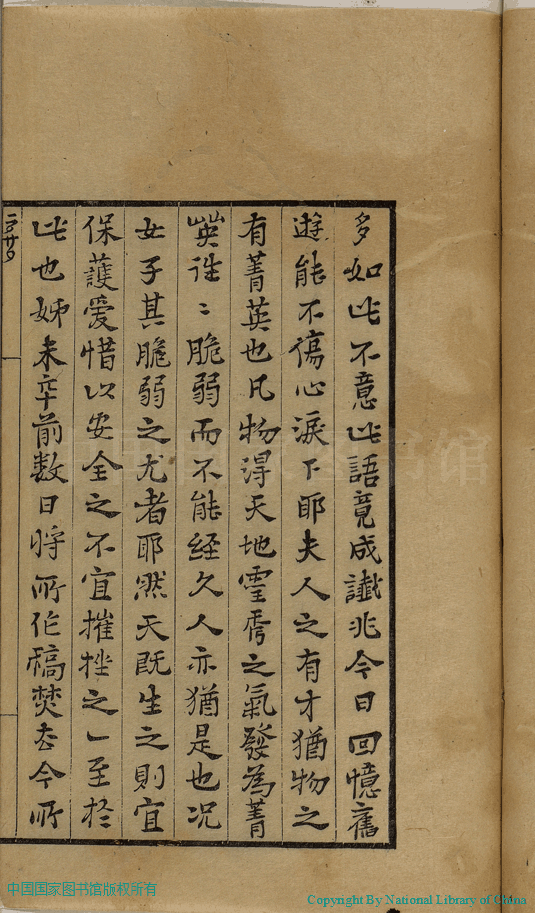 多如此不意此語竟成讖兆今日回憶舊
遊能不傷心淚下耶夫人之有才猶物之
有菁英也凡物得天地靈秀之氣發為菁
英往〻脆弱而不能經久人亦猶是也况
女子其脆弱之尤者耶然天既生之則宜
保護爱惜以安全之不宜摧挫之一至於
此也姊未卒前数日將所作稿焚去今所
中国国家图书馆版权所有
Copyright By National Library of China